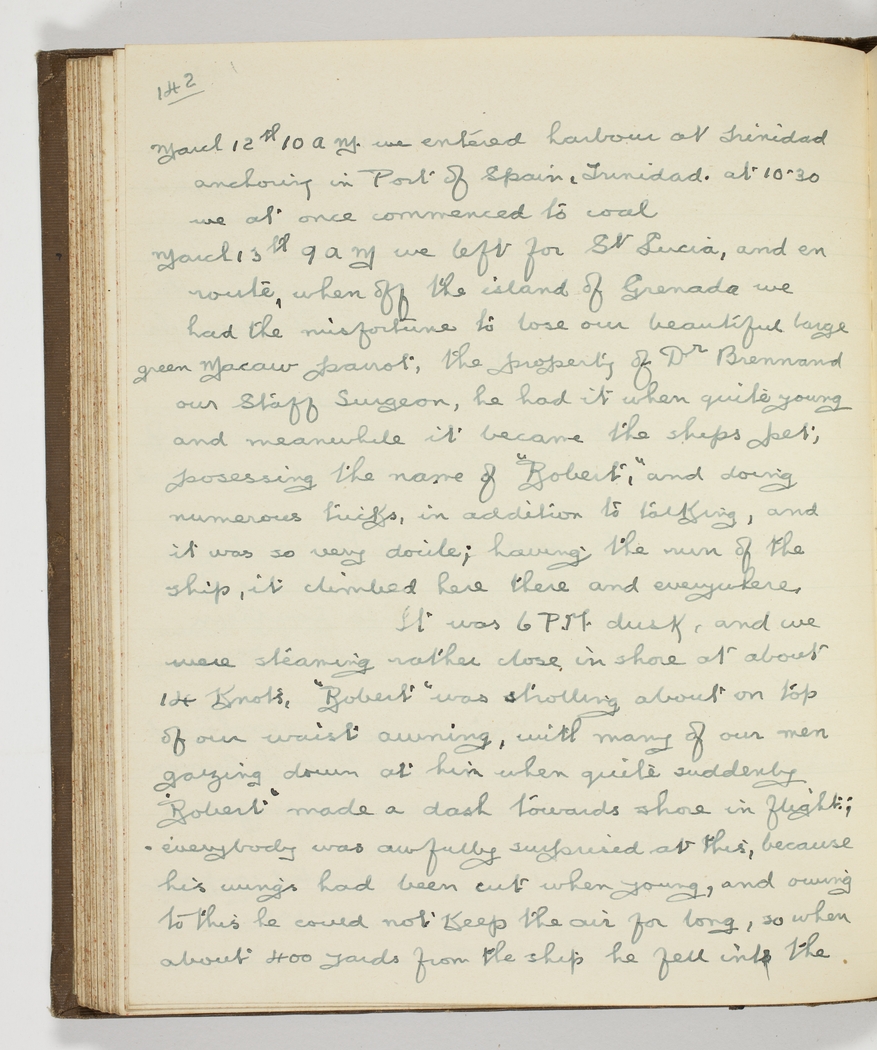 142
March 12th 10 A M. we entered harbour at Trinidad
anchoring in Port of Spain, Trinidad. at 10-30
we at once commenced to coal
March 13th 9 A M we left for St Lucia, and en
route, when off the island of Grenada we
had the misfortune to lose our beautiful large
green Macaw parrot, the property of Dr Brennand
our Staff Surgeon, he had it when quite young
and meanwhile it became the ships pet,
posessing the name of "Robert", and doing
numerous tricks, in addition to talking, and
it was so very docile; having the run of the
ship, it climbed here there and everywhere.
It was 6 P.M. dusk, and we
were steaming rather close in shore at about
14 Knots, "Robert" was strolling about on top
of our waist awning, with many of our men
gazing down at him when quite suddenly
"Robert" made a dash towards shore in flight;
everybody was awfully surprised at this, because
his wings had been cut when young, and owing
to this he could not Keep the air for long, so when
about 400 yards from the ship he fell into the